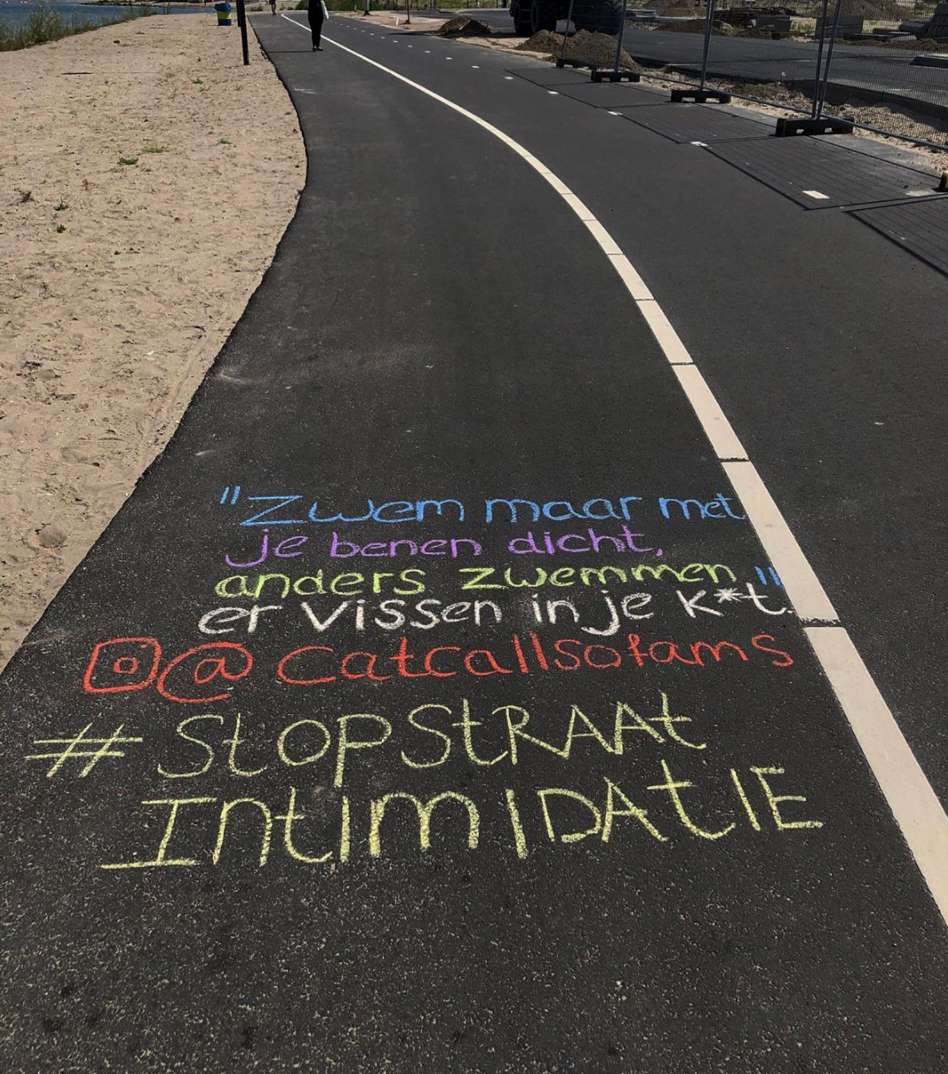 "Zwem maar met
je benen dicht,
anders zwemmen
er vissen in je k*t."
@catcallsofams
#StopStRAAt
IntimIDAtIE